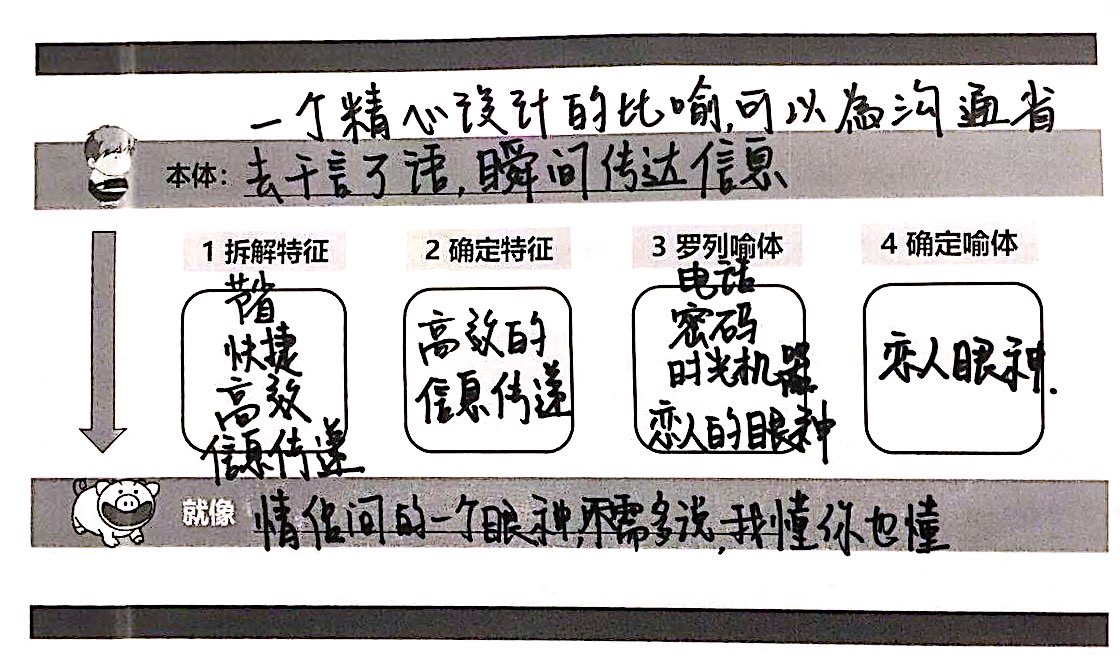 一个精心设计的比喻,可以為沟通省
本体: 去千言了语,瞬间传达信息
1 拆解特征
节省
快捷
高效
信息传递
2 确定特征
高效的
信息传递
3 罗列喻体
电话
密码
时光机器
恋人的眼神
4 确定喻体
恋人眼神.
就像 情侣间的一个眼神,不需多说,我懂你也懂